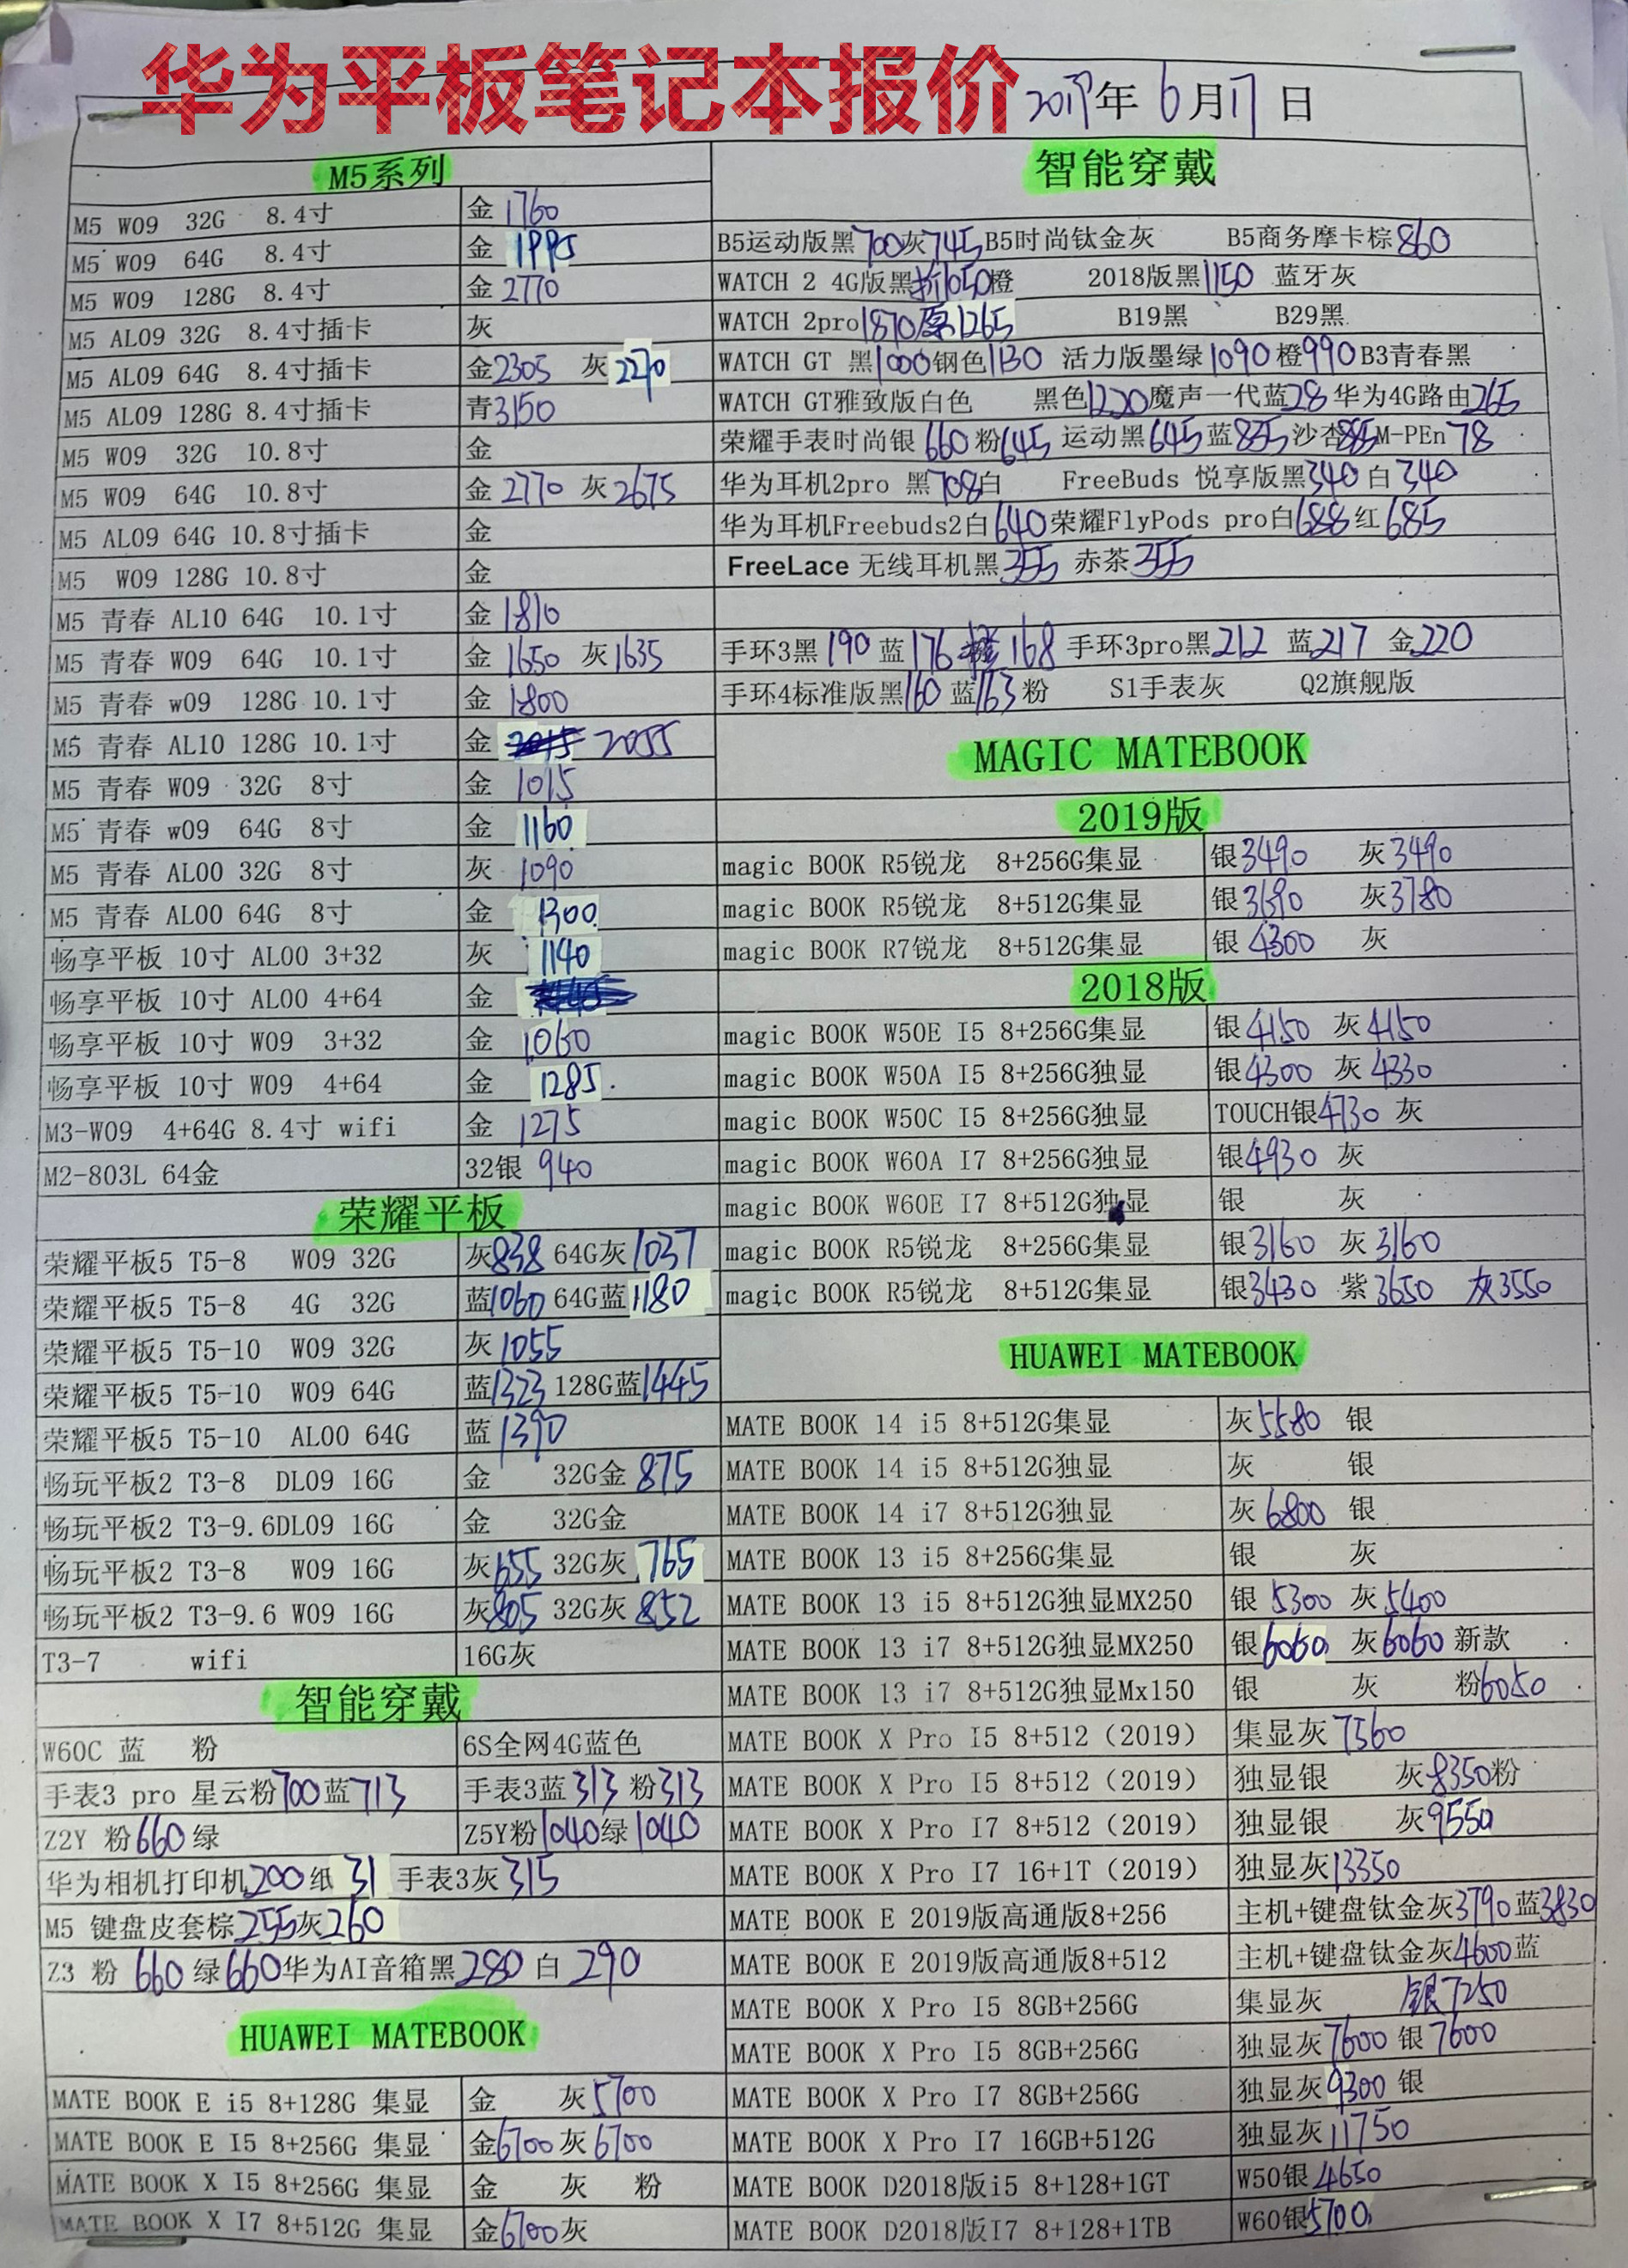 华为平板笔记本报价 2019年 6月17日
M5系列
M5 W09 32G 8.4寸 金 1760
M5 W09 64G 8.4寸 金 1995
M5 W09 128G 8.4寸 金 2770
M5 AL09 32G 8.4寸插卡 灰
M5 AL09 64G 8.4寸插卡 金2305 灰2270
M5 AL09 128G 8.4寸插卡 青3150
M5 W09 32G 10.8寸 金
M5 W09 64G 10.8寸 金2770 灰2675
M5 AL09 64G 10.8寸插卡 金
M5 W09 128G 10.8寸 金
M5 青春 AL10 64G 10.1寸 金 1810
M5 青春 W09 64G 10.1寸 金 1650 灰1635
M5 青春 w09 128G 10.1寸 金 1800
M5 青春 AL10 128G 10.1寸 金 2055
M5 青春 W09 32G 8寸 金 1015
M5 青春 w09 64G 8寸 金 1160
M5 青春 AL00 32G 8寸 灰 1090
M5 青春 AL00 64G 8寸 金 1300
畅享平板 10寸 AL00 3+32 灰 1140
畅享平板 10寸 AL00 4+64 金
畅享平板 10寸 W09 3+32 金 1060
畅享平板 10寸 W09 4+64 金 1285.
M3-W09 4+64G 8.4寸 wifi 金 1275
M2-803L 64金 32银 940
荣耀平板
荣耀平板5 T5-8 W09 32G 灰838 64G灰1037
荣耀平板5 T5-8 4G 32G 蓝1060 64G蓝1180
荣耀平板5 T5-10 W09 32G 灰1055
荣耀平板5 T5-10 W09 64G 蓝1323 128G蓝1445
荣耀平板5 T5-10 AL00 64G 蓝1390
畅玩平板2 T3-8 DL09 16G 金 32G金 875
畅玩平板2 T3-9.6DL09 16G 金 32G金
畅玩平板2 T3-8 W09 16G 灰655 32G灰 765
畅玩平板2 T3-9.6 W09 16G 灰805 32G灰 852
T3-7 wifi 16G灰
智能穿戴
W60C 蓝 粉 6S全网4G蓝色
手表3 pro 星云粉700蓝713 手表3蓝313粉313
Z2Y 粉660绿 Z5Y粉1040绿1040
华为相机打印机200纸 31 手表3灰315
M5 键盘皮套棕255灰260
Z3 粉 660 绿660华为AI音箱黑280 白 290
HUAWEI MATEBOOK
MATE BOOK E i5 8+128G 集显 金 灰5700
MATE BOOK E I5 8+256G 集显 金6700灰6700
MATE BOOK X I5 8+256G 集显 金 灰 粉
MATE BOOK X I7 8+512G 集显 金6700灰
智能穿戴
B5运动版黑700灰745B5时尚钛金灰 B5商务摩卡棕860
WATCH 2 4G版黑折1050橙 2018版黑1150 蓝牙灰
WATCH 2pro1870原1265 B19黑 B29黑
WATCH GT 黑1000钢色1130 活力版墨绿1090橙990B3青春黑
WATCH GT雅致版白色 黑色1220魔声一代蓝28华为4G路由265
荣耀手表时尚银660粉645 运动黑645蓝835沙杏885M-PEn78
华为耳机2pro 黑708白 FreeBuds 悦享版黑340白340
华为耳机Freebuds2白640荣耀FlyPods pro白688红685
FreeLace 无线耳机黑355 赤茶355
手环3黑190 蓝176 橙168 手环3pro黑212 蓝217 金220
手环4标准版黑160 蓝163粉 S1手表灰 Q2旗舰版
MAGIC MATEBOOK
2019版
magic BOOK R5锐龙 8+256G集显 银3490 灰3490
magic BOOK R5锐龙 8+512G集显 银3690 灰3780
magic BOOK R7锐龙 8+512G集显 银 4300 灰
2018版
magic BOOK W50E I5 8+256G集显 银4150 灰4150
magic BOOK W50A I5 8+256G独显 银4300 灰4330
magic BOOK W50C I5 8+256G独显 TOUCH银4730 灰
magic BOOK W60A I7 8+256G独显 银4930 灰
magic BOOK W60E I7 8+512G独显 银 灰
magic BOOK R5锐龙 8+256G集显 银3160 灰3160
magic BOOK R5锐龙 8+512G集显 银3430 紫3650 灰3550
HUAWEI MATEBOOK
MATE BOOK 14 i5 8+512G集显 灰5580 银
MATE BOOK 14 i5 8+512G独显 灰 银
MATE BOOK 14 i7 8+512G独显 灰6800 银
MATE BOOK 13 i5 8+256G集显 银 灰
MATE BOOK 13 i5 8+512G独显MX250 银 5300 灰5400
MATE BOOK 13 i7 8+512G独显MX250 银6060 灰6060新款
MATE BOOK 13 i7 8+512G独显Mx150 银 灰 粉6050
MATE BOOK X Pro I5 8+512（2019） 集显灰7560
MATE BOOK X Pro I5 8+512（2019） 独显银 灰8350粉
MATE BOOK X Pro I7 8+512（2019） 独显银 灰9550
MATE BOOK X Pro I7 16+1T（2019） 独显灰13350
MATE BOOK E 2019版高通版8+256 主机+键盘钛金灰3790蓝3830
MATE BOOK E 2019版高通版8+512 主机+键盘钛金灰4600蓝
MATE BOOK X Pro I5 8GB+256G 集显灰 银7250
MATE BOOK X Pro I5 8GB+256G 独显灰7600 银7600
MATE BOOK X Pro I7 8GB+256G 独显灰9300 银
MATE BOOK X Pro I7 16GB+512G 独显灰11750
MATE BOOK D2018版i5 8+128+1GT W50银4650
MATE BOOK D2018版I7 8+128+1TB W60银5700